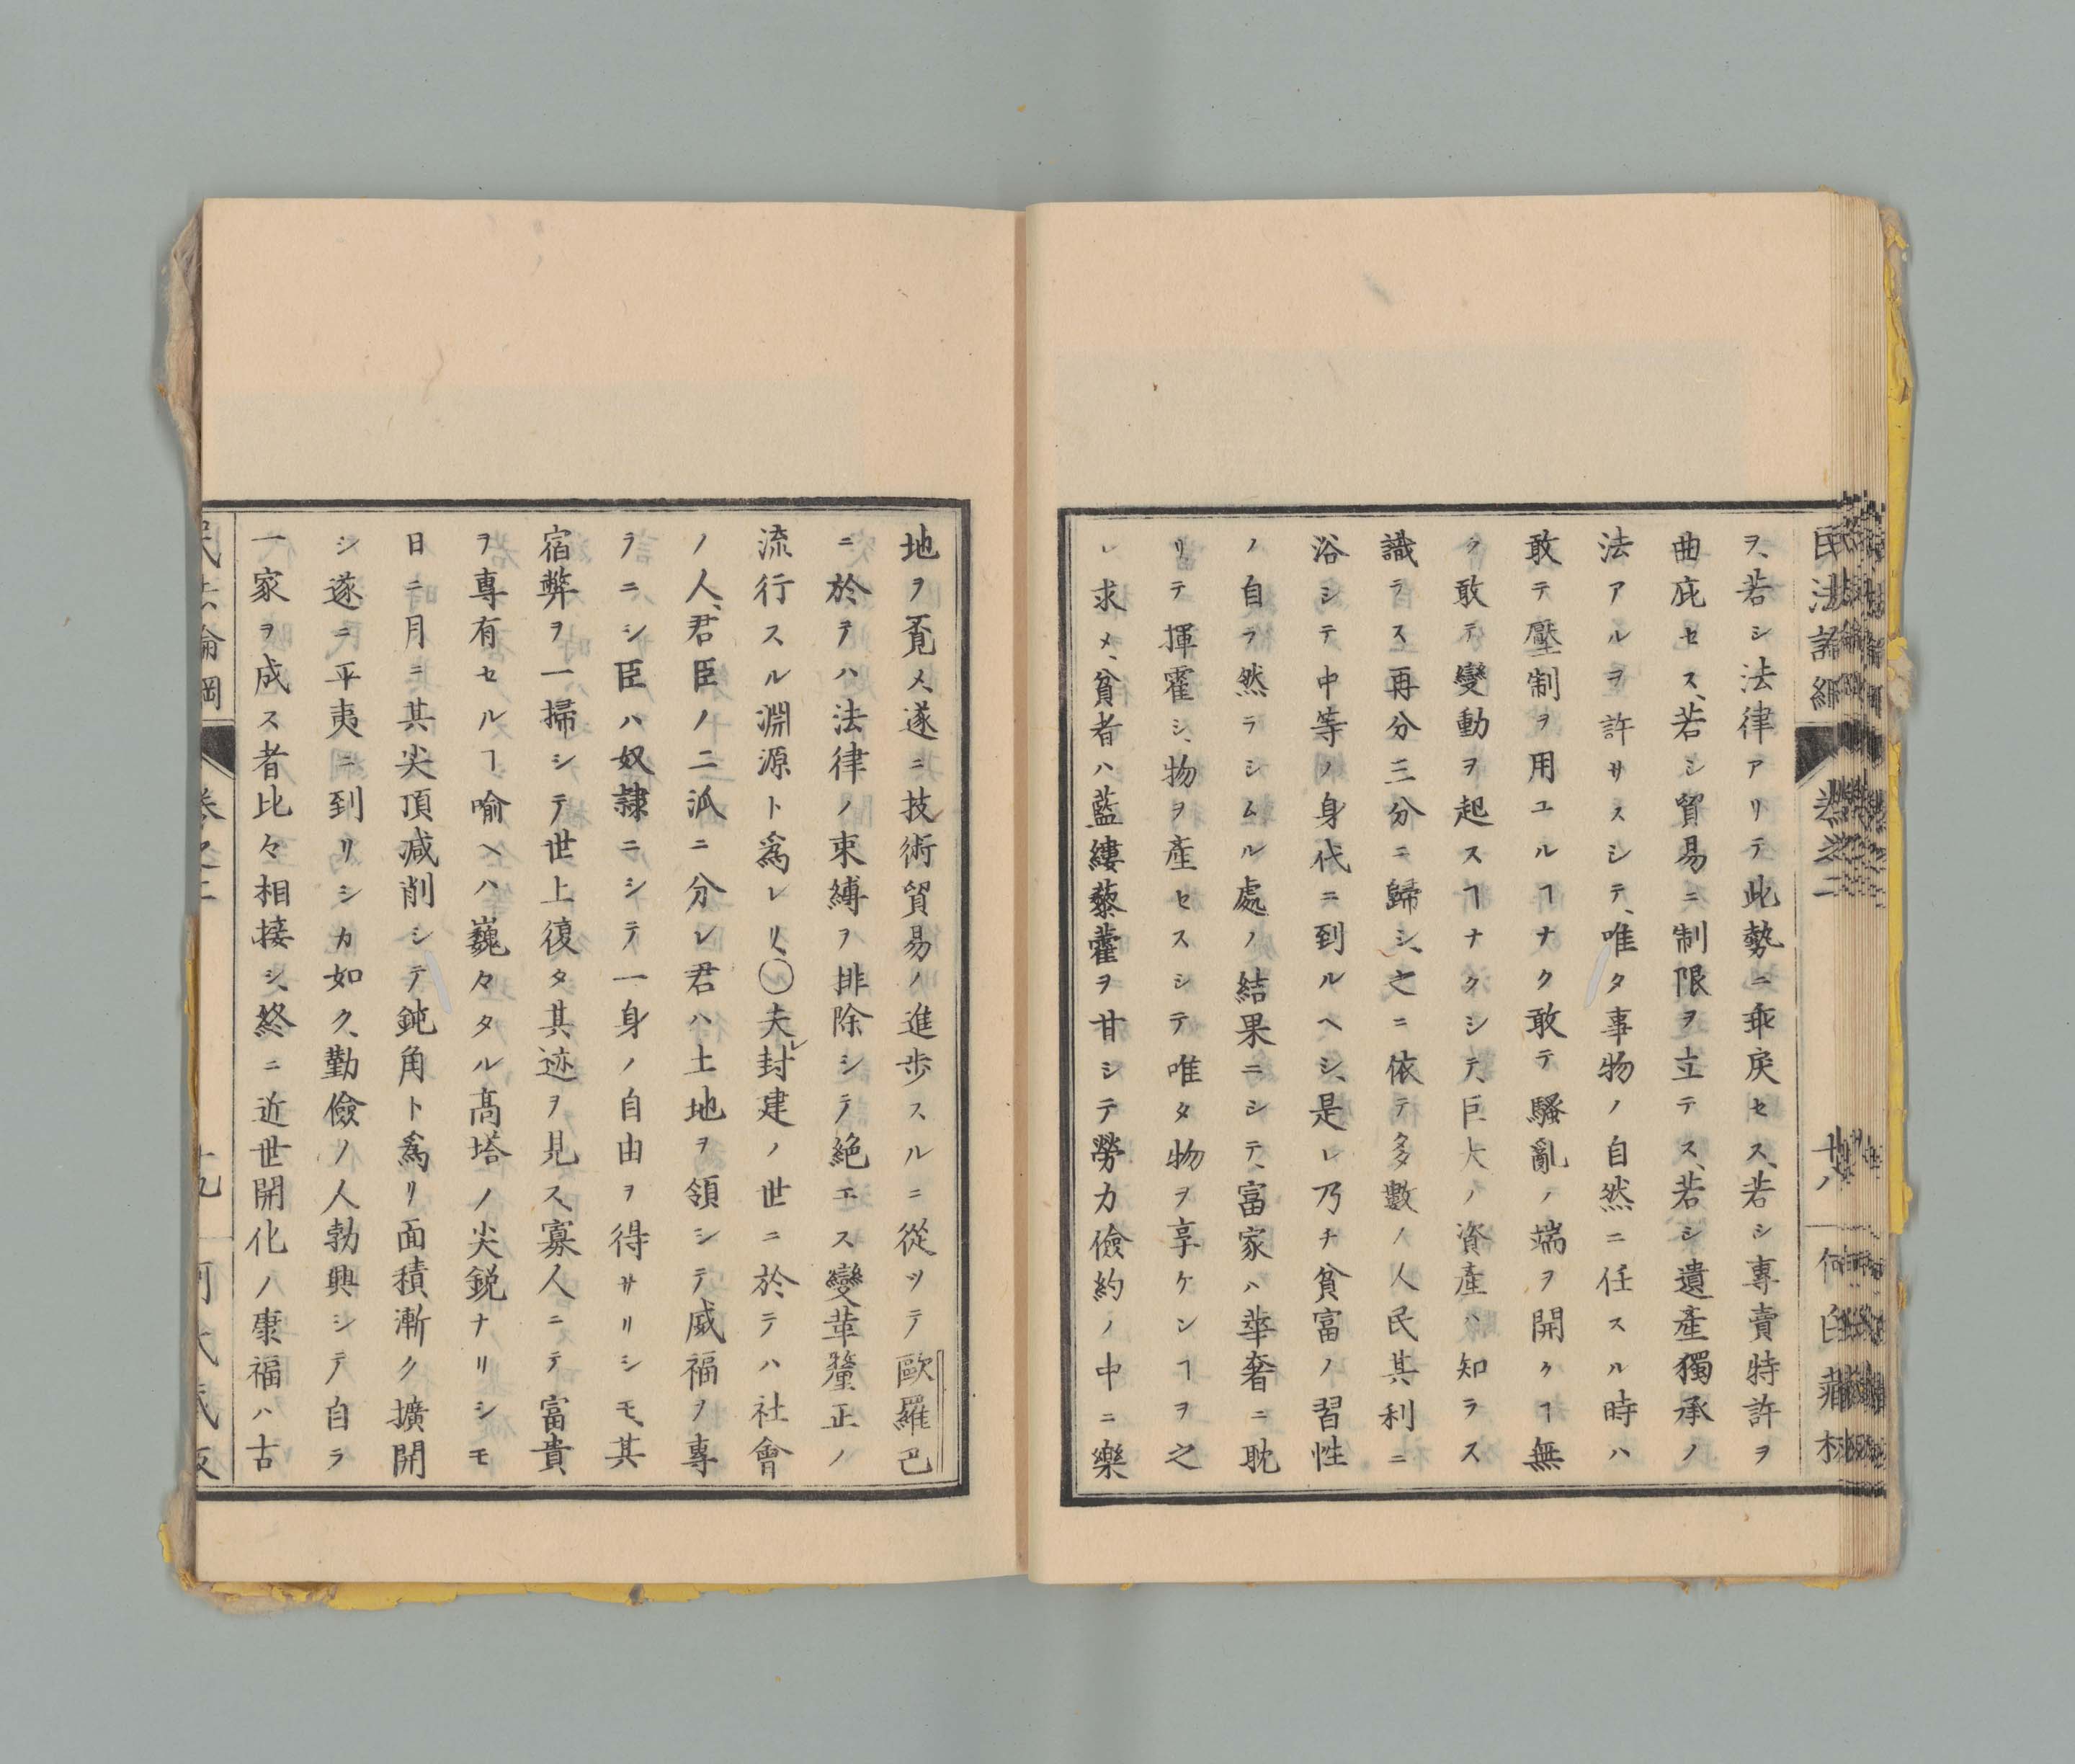 ヲ、若シ法律アリテ此勢ニ乖戾セス、若シ專賣特許ヲ
曲庇セス、若シ貿易ニ制限ヲ立テス、若シ遺產獨承ノ
法アルヲ許サスシテ、唯タ事物ノ自然ニ任スル時ハ
敢テ壓制ヲ用ユルヿナク敢テ騷亂ノ端ヲ開クヿ無
ク敢テ變動ヲ起スヿナクシテ、巨大ノ資產ハ知ラス
識ラス再分三分ニ歸シ、之ニ依テ多數ノ人民其利ニ
浴シテ中等ノ身代ニ到ルヘシ、是レ乃チ貧富ノ習性
ノ自ラ然ラシムル處ノ結果ニシテ、富家ハ華奢ニ耽
リテ揮霍シ、物ヲ產セスシテ唯タ物ヲ享ケンヿヲ之
レ求メ、貧者ハ藍縷藜藿ヲ甘シテ勞力儉約ノ中ニ樂
地ヲ覓メ、遂ニ技術貿易ノ進歩スルニ從ツテ歐羅巴
ニ於テハ法律ノ束縛ヲ排除シテ絶エス變革釐正ノ
流行スル淵源ト爲レリ、○夫レ封建ノ世ニ於テハ社會
ノ人、君臣ノ二派ニ分レ君ハ土地ヲ領シテ威福ヲ專
ラニシ臣ハ奴隷ニシテ一身ノ自由ヲ得サリシモ、其
宿弊ヲ一掃シテ世上復タ其迹ヲ見ス、寡人ニテ富貴
ヲ專有セルヿ喻ヘハ巍々タル髙塔ノ尖鋭ナリシモ
日ニ月ニ其尖頂减削シテ鈍角ト爲リ面積漸ク擴開
シ遂ニ平夷ニ到リシカ如ク、勤儉ノ人勃興シテ自ラ
一家ヲ成ス者比々相接シ、終ニ近世開化ノ康福ハ古
民法論綱 卷之二